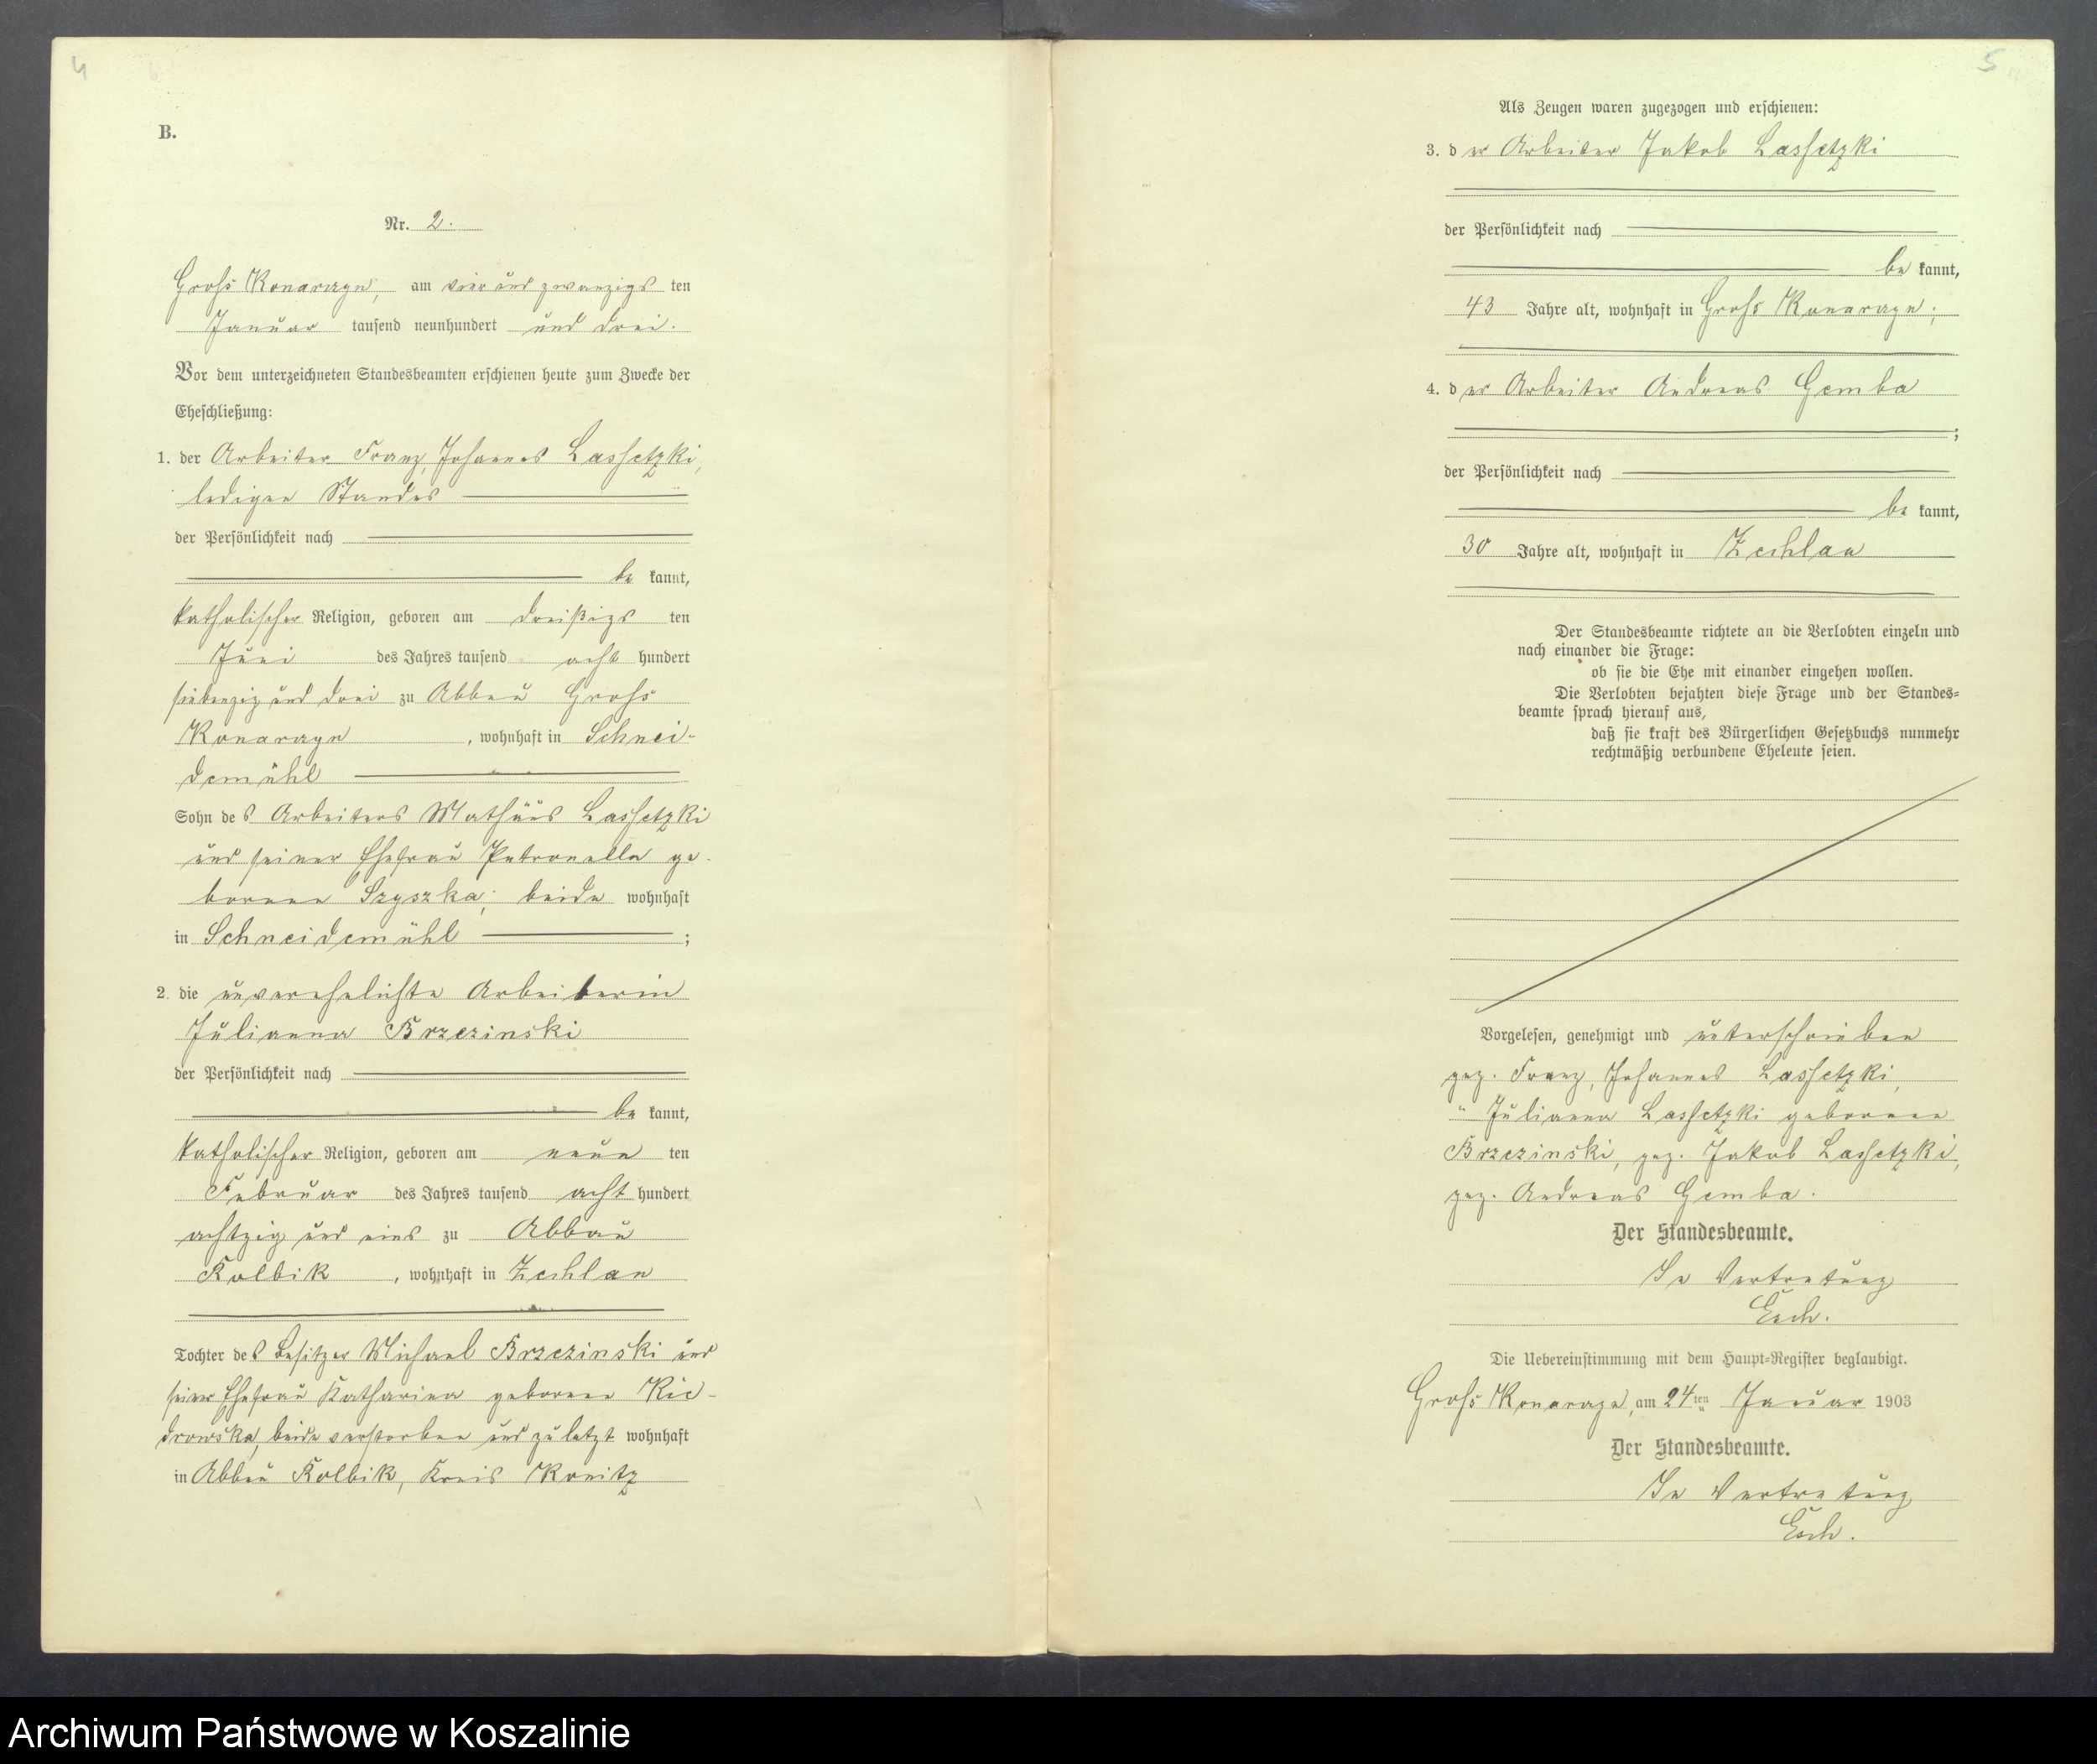 4
B.
Nr. 2.
Gross Konarzyn, am vier und zwanzigs ten
Januar tausend neunhundert und drei.
Vor dem unterzeichneten Standesbeamten erschienen heute zum Zwecke der
Eheschließung:
1. der Arbeiter Franz, Johannes Lassetzki,
ledigen Standes
der Persönlichkeit nach
be kannt,
katholischer Religion, geboren am dreißigs ten
Juni des Jahres tausend acht hundert
siebenzig und drei zu Abbau Gross
Konarzyn, wohnhaft in Schnei-
demühl
Sohn des Arbeiters Mathäus Lassetzki
und seiner Ehefrau Petronella ge-
borenen Szyszka; beide wohnhaft
in Schneidemühl ;
2. die unverehelichte Arbeiterin
Julianna Brzezinski
der Persönlichkeit nach
be kannt,
katholischer Religion, geboren am neun ten
Februar des Jahres tausend acht hundert
achtzig und eins zu Abbau
Kolbik, wohnhaft in Zechlau
Tochter des Besitzer Michael Brzezinski und
seiner Ehefrau Katharina geborenen Kie-
drowska, beide verstorben und zuletzt wohnhaft
in Abbau Kolbik, Kreis Konitz
5
Als Zeugen waren zugezogen und erschienen:
3. der Arbeiter Jakob Lassetzki
der Persönlichkeit nach
be kannt,
43 Jahre alt, wohnhaft in Gross Konarzyn;
4. der Arbeiter Andreas Gemba
;
der Persönlichkeit nach
be kannt,
30 Jahre alt, wohnhaft in Zechlau
Der Standesbeamte richtete an die Verlobten einzeln und
nach einander die Frage:
ob sie die Ehe mit einander eingehen wollen.
Die Verlobten bejahten diese Frage und der Standes=
beamte sprach hierauf aus,
daß sie kraft des Bürgerlichen Gesetzbuchs nunmehr
rechtmäßig verbundene Eheleute seien.
Vorgelesen, genehmigt und unterschrieben
gez. Franz, Johannes Lassetzki,
" Julianna Lassetzki geborenen
Brzezinski, gez. Jakob Lassetzki,
gez. Andreas Gemba.
Der Standesbeamte.
In Vertretung
Esch.
Die Uebereinstimmung mit dem Haupt=Register beglaubigt.
Gross Konarzyn, am 24 ten Januar 1903
Der Standesbeamte.
In Vertretung
Esch.
Archiwum Państwowe w Koszalinie